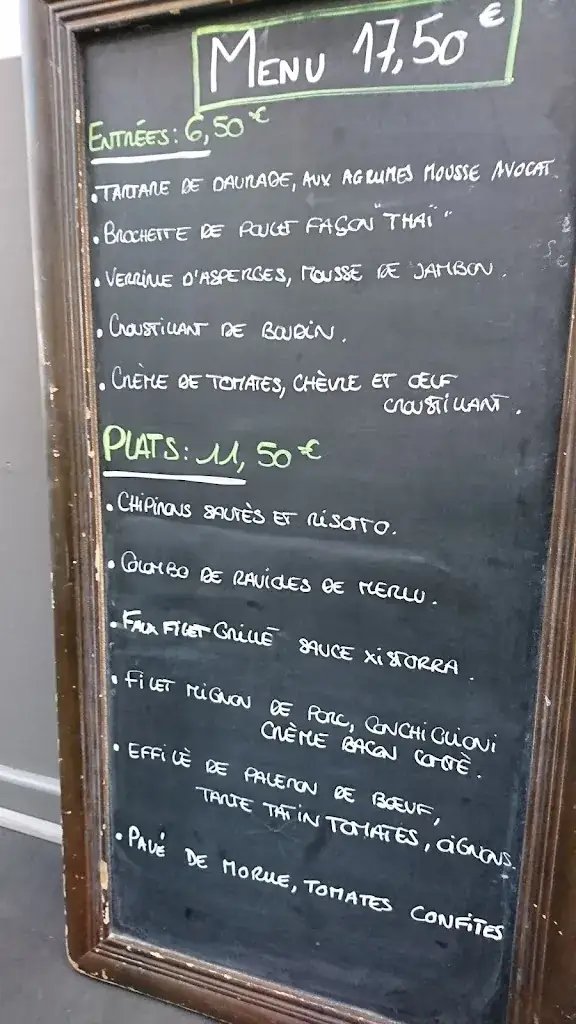 MENU 17,50 €
ENTRÉES: 6,50 €
• TARTARE DE DAURADE, AUX AGRUMES MOUSSE AVOCAT.
• BROCHETTE DE POULET FAÇON "THAÏ"
• VERRINE D'ASPERGES, MOUSSE DE JAMBON.
• CROUSTILLANT DE BOUDIN.
• CRÈME DE TOMATES, CHÈVRE ET ŒUF
CROUSTILLANT.
PLATS: 11,50 €
• CHIPIRONS SAUTÈS ET RISOTTO.
• COLOMBO DE RAVIOLES DE MERLU.
• FAUX FILET GRILLÉ SAUCE XISTORRA.
• FILET MIGNON DE PORC, CONCHIGLIONI
CRÈME BACON COMTÈ.
• EFFILÈ DE PALERON DE BŒUF,
TARTE TATIN TOMATES, OIGNONS.
• PAVÉ DE MORUE, TOMATES CONFITES